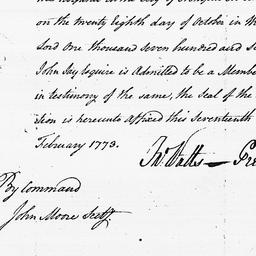 on the twenty Eighth day of October in th
Lord One thousand Seven hundred and S
John Jay Esquire is Admitted to be a Membe
in testimony of the same, the Seal of the
is hereunto affixed this Seventeenth
February 1773.
Jno. Watts — Pre
By Command
John Moore Secty.